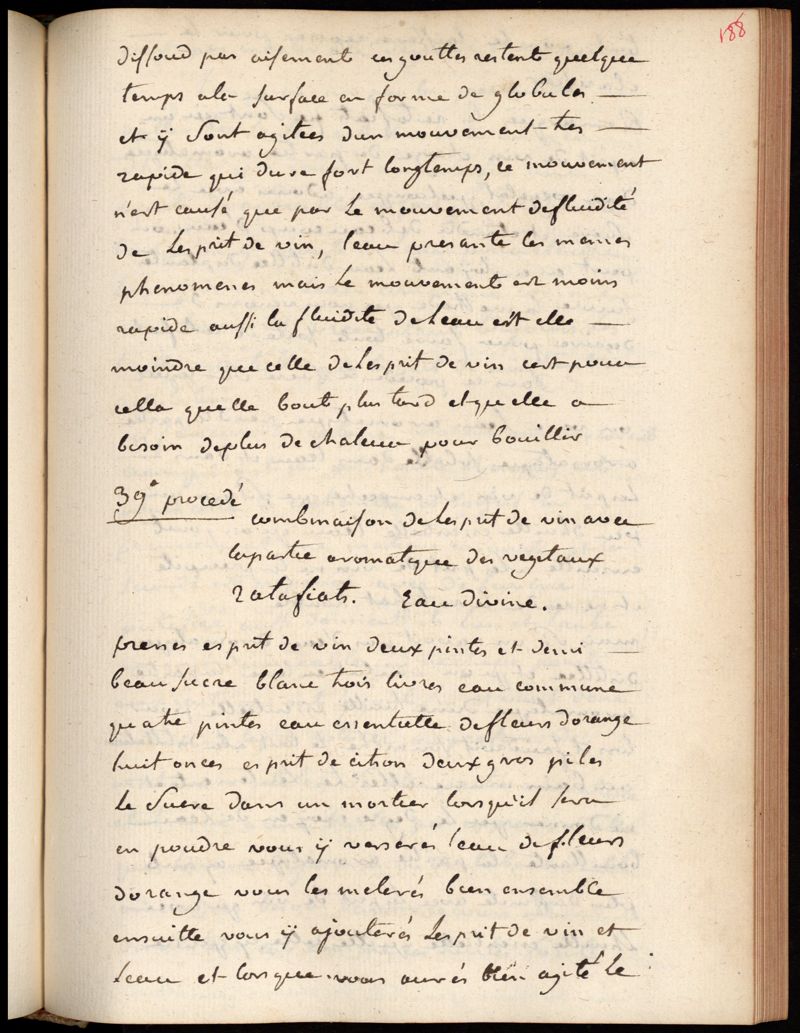 188
dissoud pas aisement ces gouttes restent quelque
temps ala surface en forme de globules
et ÿ sont agitées dun mouvement tres
rapide qui dure fort longtemps, ce mouvement
n'est causé que par le mouvement defluidité
de Lesprit de vin, leau presante les memes
phenomenes mais le mouvement est moins
rapide aussi la fluidité deleau est elle
moindre que celle delesprit de vin cest pour
cella quelle bout plus tard et quelle a
besoin deplus de chaleur pour bouillir
39e procedé
combinaison delesprit de vin avec
lapartie aromatique des vegetaux
ratafiats. Eau divine.
prenes esprit de vin deux pintes et demi
beau sucre blanc trois livres eau commune
quatre pintes eau essentielle defleurs dorange
huit onces esprit de citron deux gros piles
le sucre dans un mortier lorsquil sera
en poudre vous ÿ verserés leau defleurs
dorange vous les melerés bien ensemble
ensuitte vous ÿ ajouterés Lesprit de vin et
leau et lorsque vous aurés bien agité le